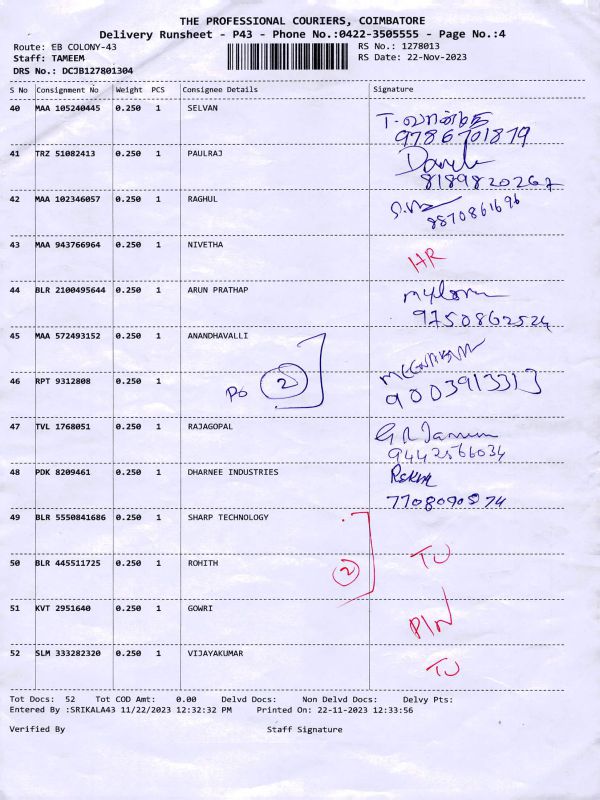 THE PROFESSIONAL COURIERS, COIMBATORE
Delivery Runsheet - P43 - Phone No.:0422-3505555 - Page No.:4
Route: EB COLONY-43
RS No.: 1278013
Staff: TAMEEM
RS Date: 22-Nov-2023
DRS No.: DCJB127801304
S No Consignment No Weight PCS Consignee Details Signature
40 MAA 105240445 0.250 1 SELVAN
9786701879
41 TRZ 51082413 0.250 1 PAULRAJ
8189820267
42 MAA 102346057 0.250 1 RAGHUL
8870861696
43 MAA 943766964 0.250 1 NIVETHA HR
44 BLR 2100495644 0.250 1 ARUN PRATHAP
9750862524
45 MAA 572493152 0.250 1 ANANDHAVALLI
46 RPT 9312808 0.250 1 2
9003913313
47 TVL 1768051 0.250 1 RAJAGOPAL
9442566034
48 PDK 8209461 0.250 1 DHARNEE INDUSTRIES
7708090574
49 BLR 5550841686 0.250 1 SHARP TECHNOLOGY
50 BLR 445511725 0.250 1 ROHITH 2 TU
51 KVT 2951640 0.250 1 GOWRI P/N
52 SLM 333282320 0.250 1 VIJAYAKUMAR TU
Tot Docs: 52 Tot COD Amt: 0.00 Delvd Docs: Non Delvd Docs: Delvy Pts:
Entered By :SRIKALA43 11/22/2023 12:32:32 PM Printed On: 22-11-2023 12:33:56
Verified By Staff Signature